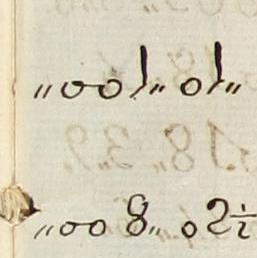 „001„ 01„
„008„ 02½